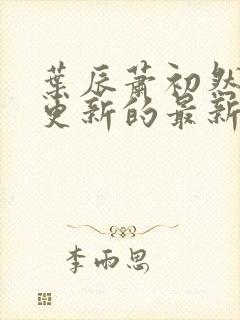 葉辰蕭初然
更新的最新
李雨思